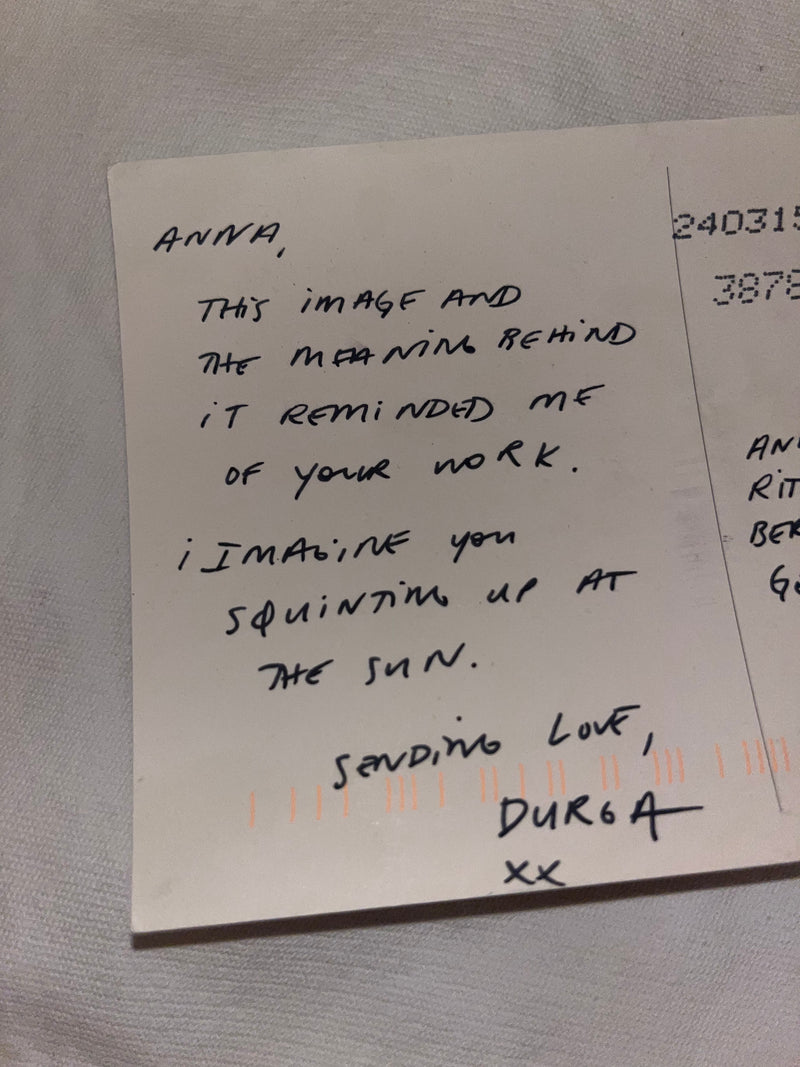 ANNA,
THiS iMAGE AND
THE MEANiNG BEHiND
iT REMiNDED ME
OF YOUR WORK.
i IMAGiNE you
SQUiNTiNG UP AT
THE SUN.
SENDiNG LOVE,
DURGA
xx
240315
3878
AN
RiT
BER